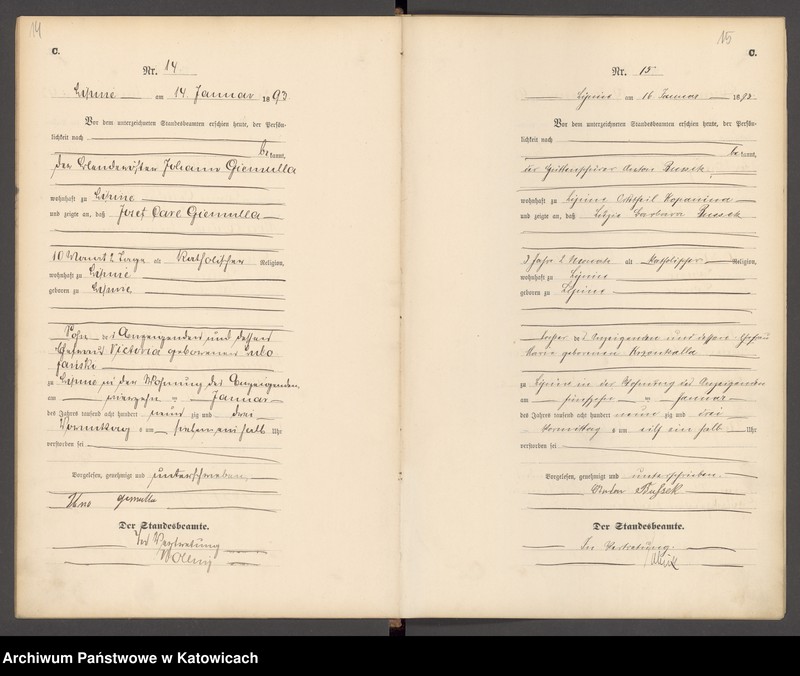 14
C.
Nr. 14
Lipine am 14 Januar 1893
Vor dem unterzeichneten Standesbeamten erschien heute, der Persön-
lichkeit nach
be kannt,
der Johann Giemulla
wohnhaft zu Lipine
und zeigte an, daß Josef Carl Giemulla
10 Monat 2 Tage alt Katholischer Religion,
wohnhaft zu Lipine
geboren zu Lipine
Sohn des Anzeigenden und dessen
Ehefrau Victoria geborenen
zu Lipine in der Wohnung des Anzeigenden
am vierzehn ten Januar
des Jahres tausend acht hundert neun zig und drei
Vormittag um sieben ein halb Uhr
verstorben sei
Vorgelesen, genehmigt und unterschrieben
Giemulla
Der Standesbeamte.
In Vertretung
15
C.
Nr. 15
Lipine am 16 Januar 1893
Vor dem unterzeichneten Standesbeamten erschien heute, der Persön-
lichkeit nach
be kannt,
der Anton Bussek
wohnhaft zu Lipine Ortstheil Kopanina
und zeigte an, daß Barbara Bussek
3 Jahr 2 Monate alt Katholischer Religion,
wohnhaft zu Lipine
geboren zu Lipine
Tochter des Anzeigenden und dessen Ehefrau
Marie geborenen
zu Lipine in der Wohnung des Anzeigenden
am fünfzehn ten Januar
des Jahres tausend acht hundert neun zig und drei
Vormittag um elf ein halb Uhr
verstorben sei
Vorgelesen, genehmigt und unterschrieben
Bussek
Der Standesbeamte.
In Vertretung
Archiwum Państwowe w Katowicach